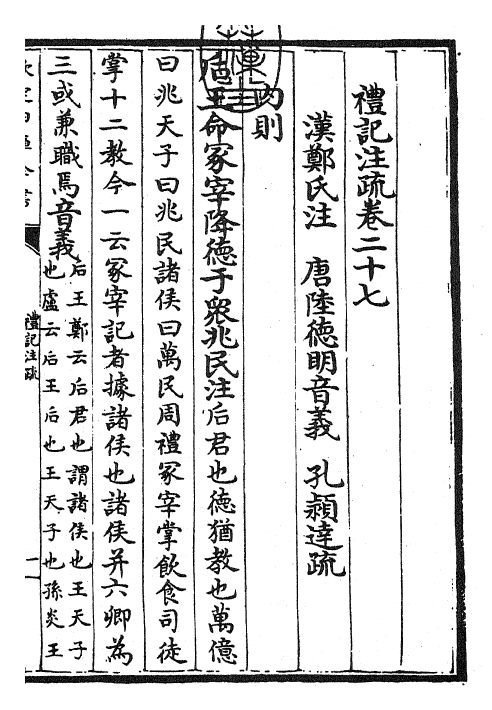 禮記注疏卷二十七
漢鄭氏注　唐陸德明音義　孔穎達疏
內則
后王命冢宰降德于眾兆民注后君也德猶教也萬億
曰兆天子曰兆民諸侯曰萬民周禮冢宰掌飲食司徒
掌十二教今一云冢宰記者據諸侯也諸侯并六卿為
三或兼職焉音義
后王鄭云后君也謂諸侯也王天子
也盧云后王后也王天子也孫炎王
禮記注疏
一